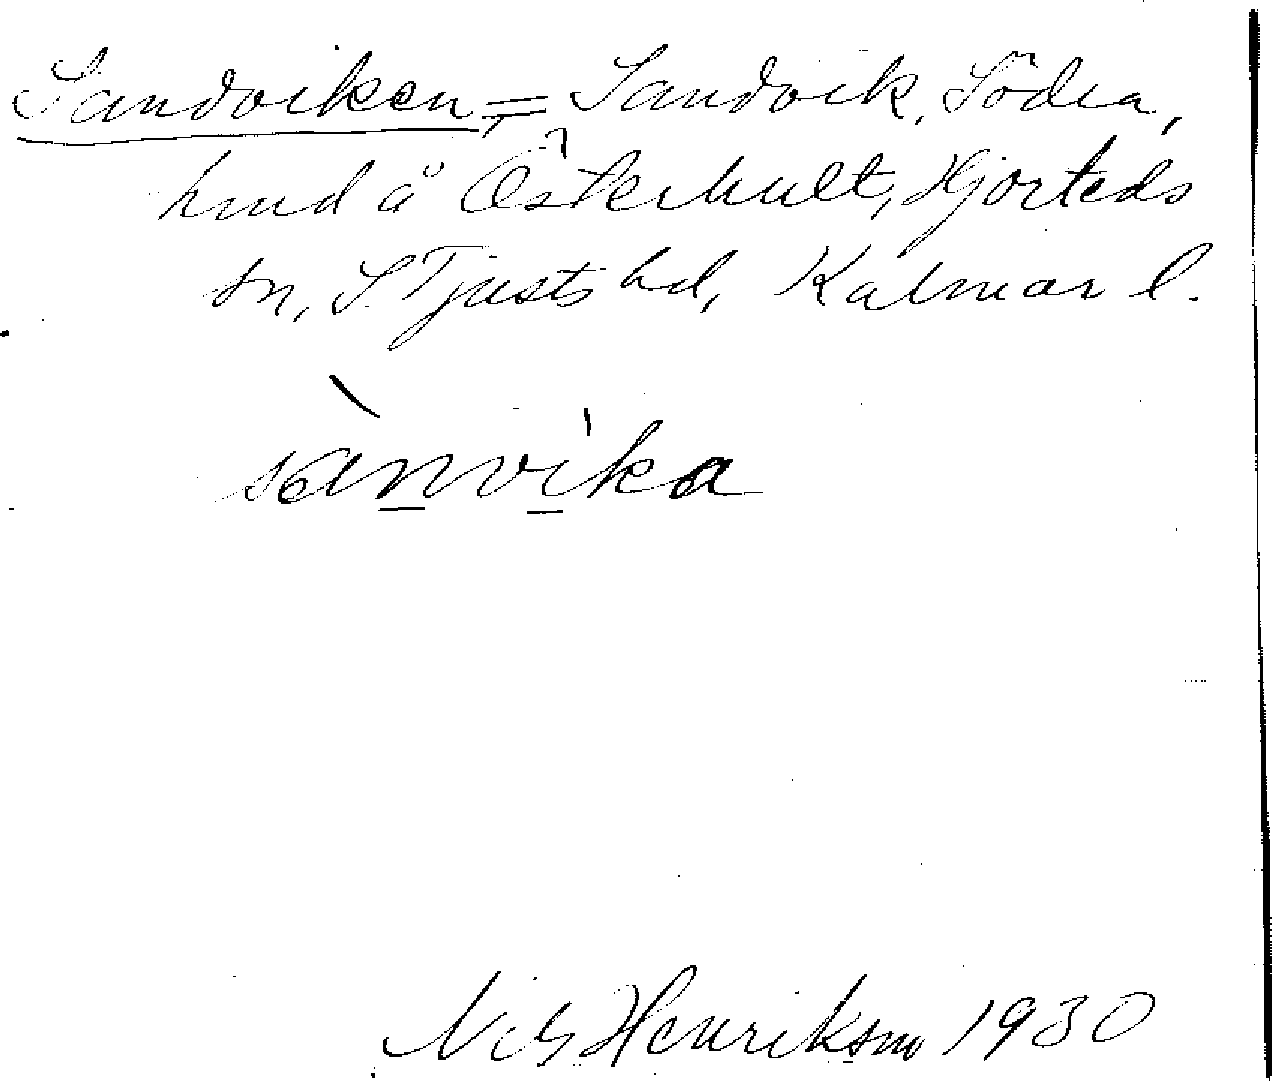 Sandviken, = Sandvik, Södra,
hmd å Österhult, Hjorteds
sn, S. Tjusts hd, Kalmar l.
sànvika
Nils Henrikson 1930